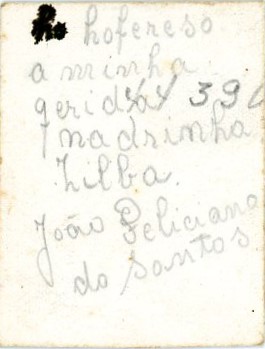 hofereso
a minha
gerida 44 396
madrinha
Zilba.
João Feliciano
do santos